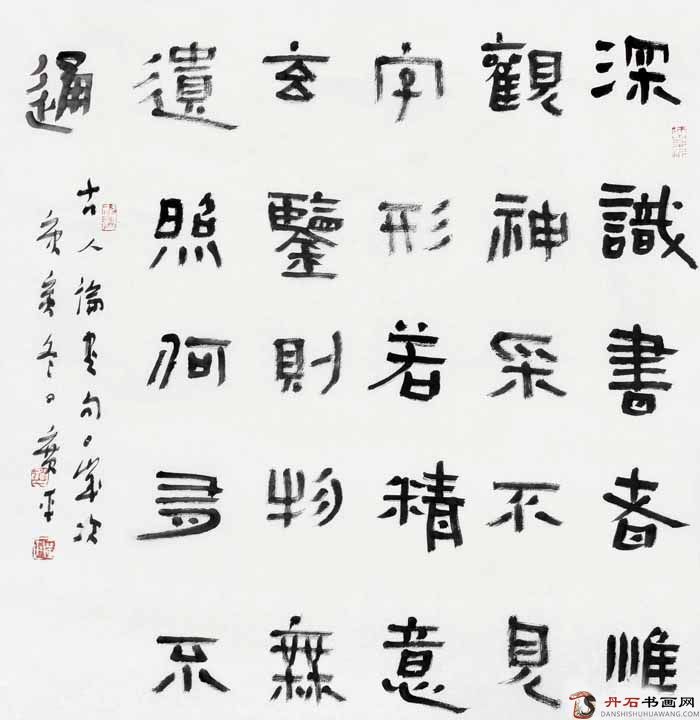 深識書者惟
觀神采不見
字形若精意
玄鑒則物無
遺照何有不
通
古人論書句歲次
亥冬日廣平
丹石书画网
DANSHISHUHUAWANG.COM